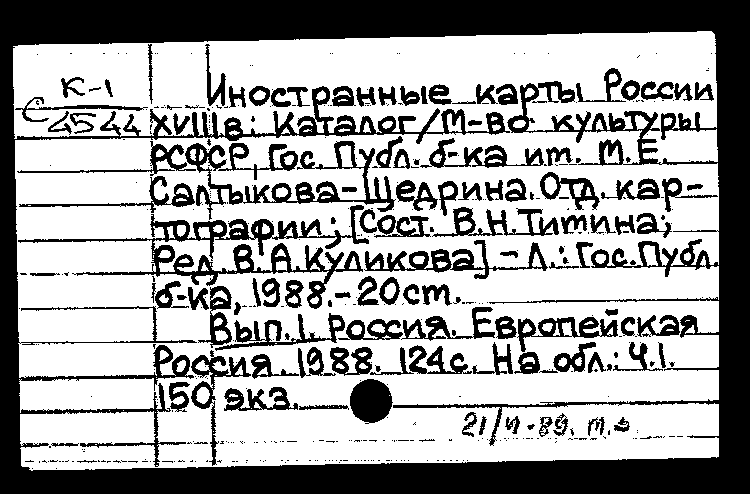 К-1
С 4544
Иностранные карты России
XVIIIв: Каталог/М-во культуры
РСФСР, Гос. Публ. б-ка им. М.Е.
Салтыкова-Щедрина. Отд. кар-
тографии; [Сост. В.Н.Титина;
Ред. В.А.Куликова]. - Л.: Гос. Публ.
б-ка, 1988. - 20 см.
Вып.1. Россия. Европейская
Россия. 1988. 124с. На обл.: Ч.1.
150 экз.